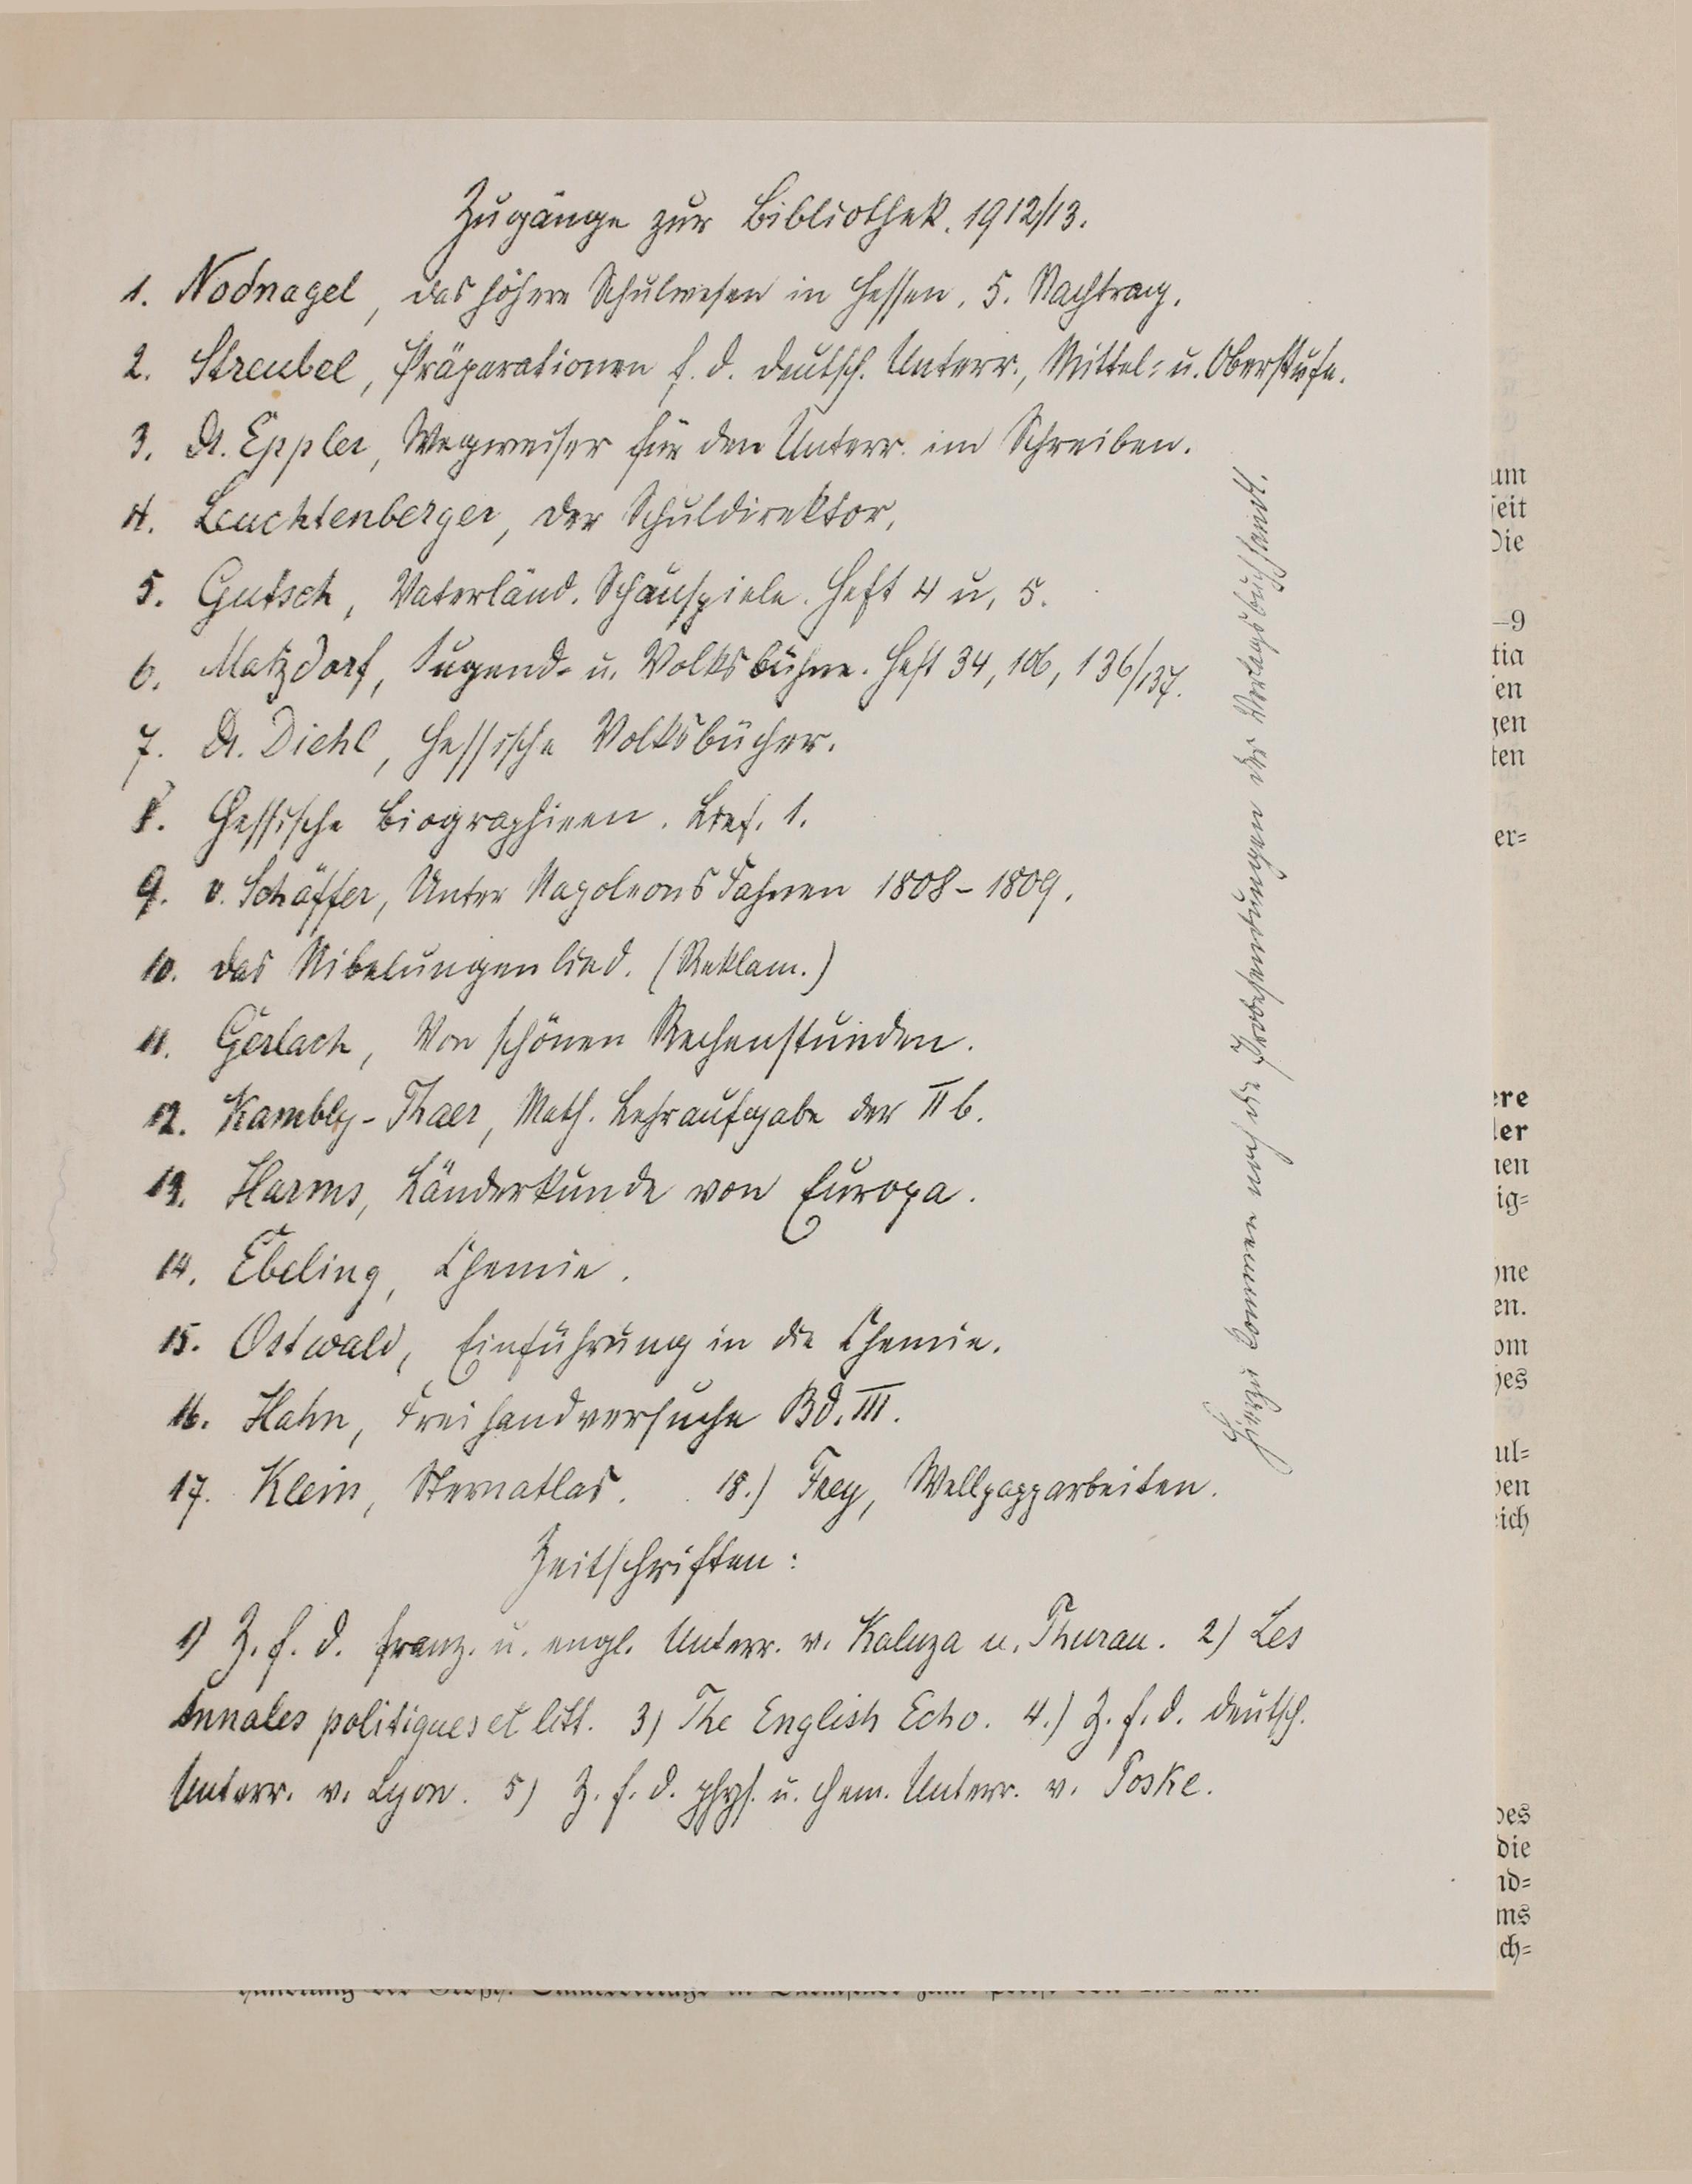 Zugänge zur Bibliothek. 1912/13.
1. Nodnagel, das höhere Schulwesen in Hessen. 5. Nachtrag.
2. Streubel, Präparationen f. d. deutsch. Unterr., Mittel- u. Oberstufe.
3. Dr. Eppler, Wegweiser für den Unterr. im Schreiben.
4. Leuchtenberger, der Schuldirektor.
5. Gutsch, Vaterländ. Schauspiele. Heft 4 u. 5.
6. Matzdorf, Jugend- u. Volksbühne. Heft 34, 106, 136/137.
7. Dr. Diehl, Hessische Volksbücher.
8. Hessische Biographieen. Lief. 1.
9. v. Schäffer, Unter Napoleons Fahnen 1808–1809.
10. das Nibelungenlied. (Reklam.)
11. Gerlach, Von schönen Rechenstunden.
12. Kambly-Thaer, Math. Lehraufgabe der II b.
13. Harms, Länderkunde von Europa.
14. Ebeling, Chemie.
15. Ostwald, Einführung in die Chemie.
16. Hahn, Freihandversuche Bd. III.
17. Klein, Sternatlas. 18.) Frey, Wellpapparbeiten.
Zeitschriften:
1) Z. f. d. franz. u. engl. Unterr. v. Kaluza u. Thurau. 2) Les
Annales politiques et litt. 3) The English Echo. 4.) Z. f. d. deutsch.
Unterr. v. Lyon. 5) Z. f. d. phys. u. chem. Unterr. v. Poske.
Hierzu kommen noch die Probesendungen der Verlagsbuchhandl.
um
eit
Die
–9
tia
en
gen
ten
er=
ere
ler
nen
ig=
one
en.
om
hes
ul=
ben
eich
des
die
nd=
ms
ch=